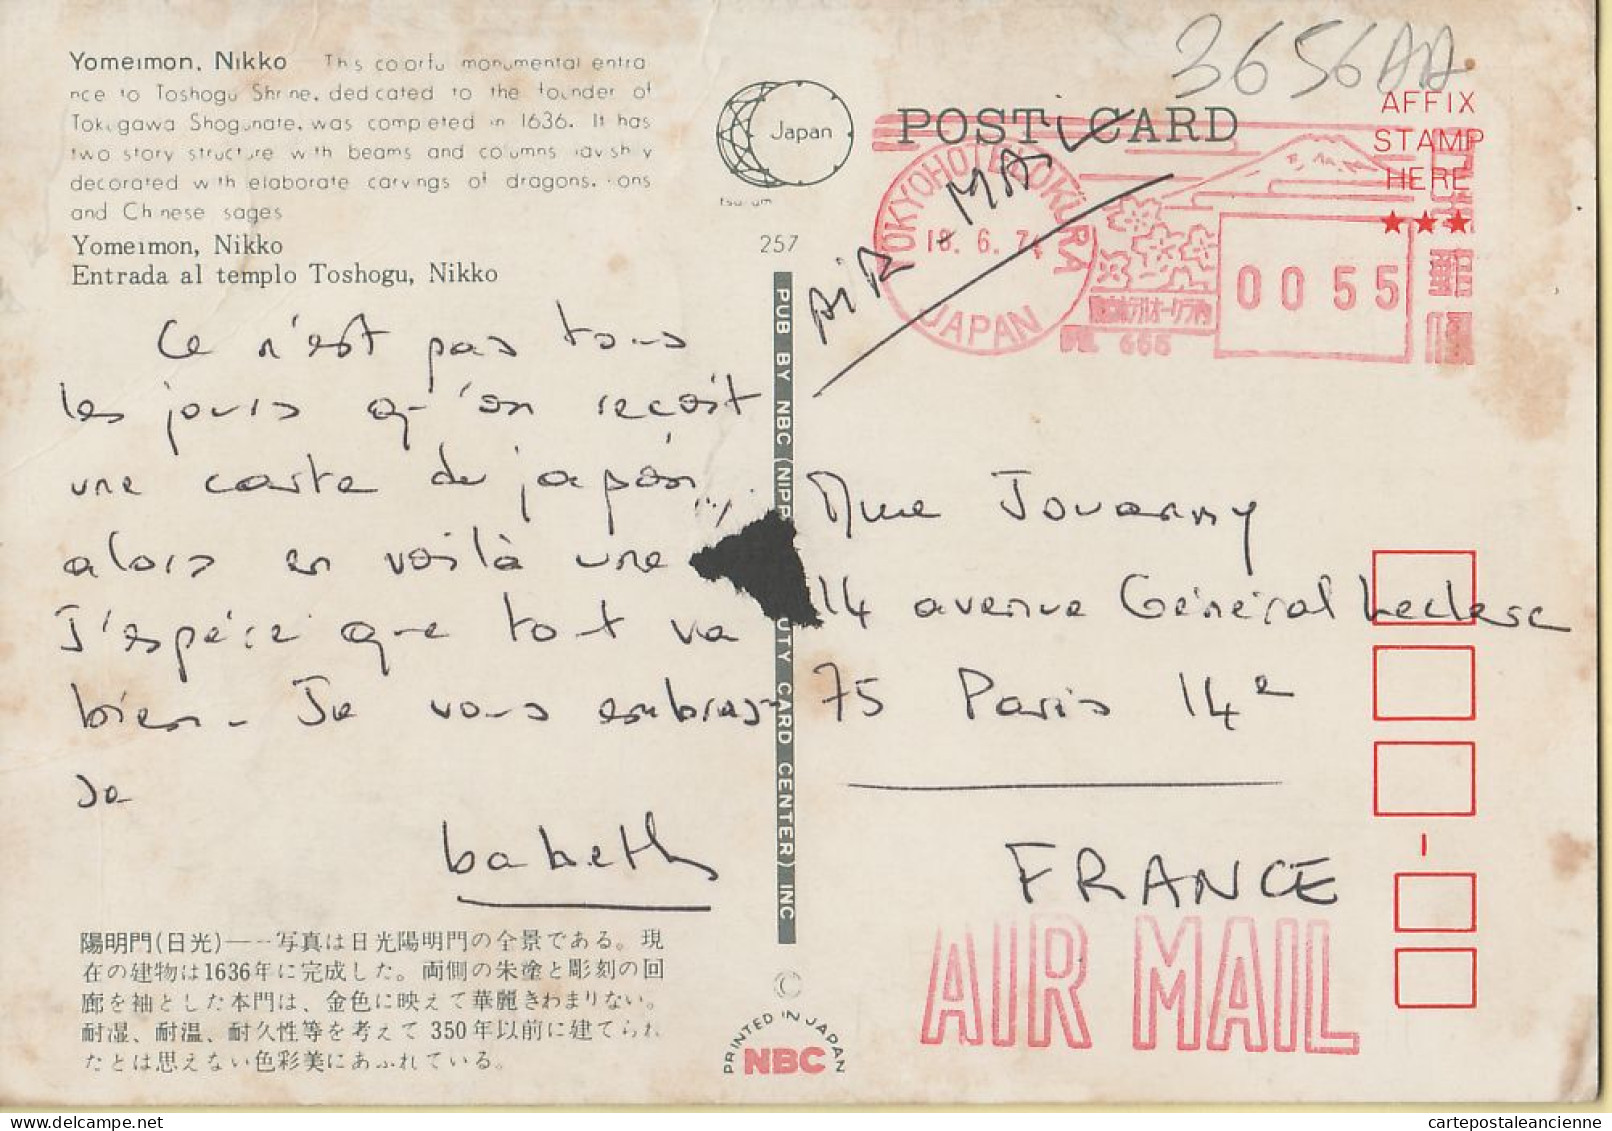 Yomeimon, Nikko This colorful monumental entra
nce to Toshogu Shrine, dedicated to the founder of
Tokugawa Shogunate, was completed in 1636. It has
two story structure with beams and columns lavishly
decorated with elaborate carvings of dragons, ions
and Chinese sages
Yomeimon, Nikko
Entrada al templo Toshogu, Nikko
Ce n'est pas tous
les jours qu'on reçoit
une carte du japon...
alors en voilà une
J'espère que tout va
bien - Je vous embras
se
babeth
陽明門(日光)―写真は日光陽明門の全景である。現
在の建物は1636年に完成した。両側の朱塗と彫刻の回
廊を袖とした本門は、金色に映えて華麗きわまりない。
耐湿、耐温、耐久性等を考えて 350年以前に建てられ
たとは思えない色彩美にあふれている。
Japan
257
PUB BY NBC (NIPP UTY CARD CENTER) INC
©
PRINTED IN JAPAN
NBC
3656AA
POST CARD
AFFIX
STAMP
HERE
★★★
AIR-MAIL
TOKYO HOTEL OKURA
18. 6. 74
JAPAN
ホテルオークラ内
666
00 55
Mme Jouanny
14 avenue Général Leclerc
75 Paris 14e
FRANCE
AIR MAIL
cartepostaleancienne